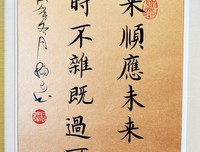 来順應未来
時不雜既過
年冬月